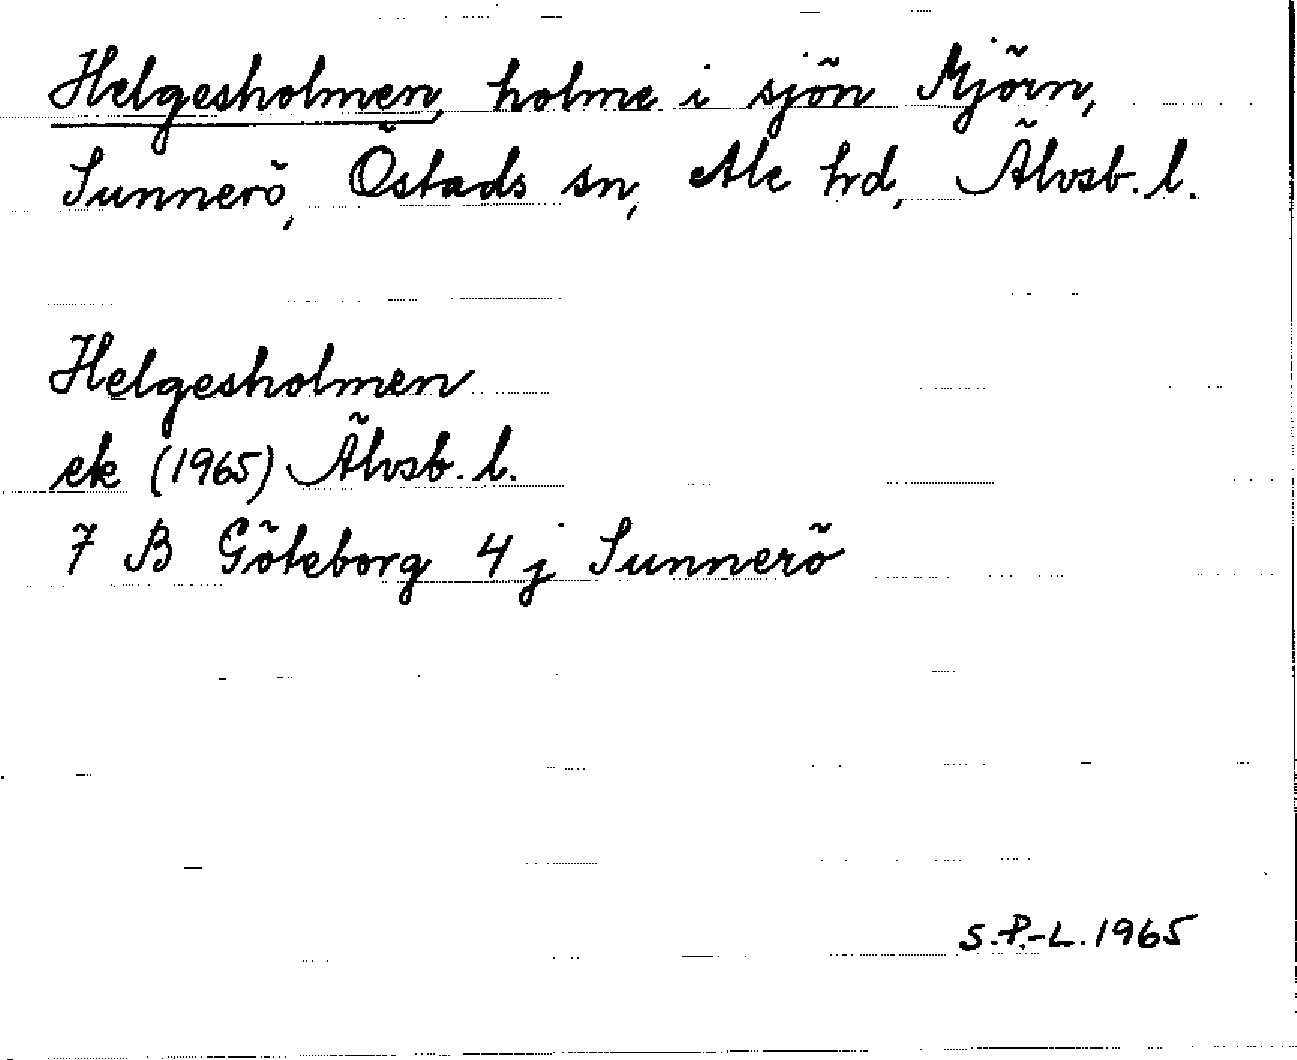 Helgesholmen, holme i sjön Mjörn,
Sunnerö, Östads sn, Ale hrd, Älvsb. l.
Helgesholmen
ek (1965) Älvsb. l.
7 B Göteborg 4 j Sunnerö
S.P.-L. 1965